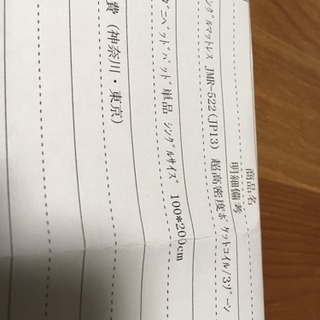 商品名
明細備考
ングルマットレス JMR-522(JP13) 超高密度ポケットコイル/3ゾーン
ベッドパッド単品 シングルサイズ 100*200cm
費(神奈川・東京)